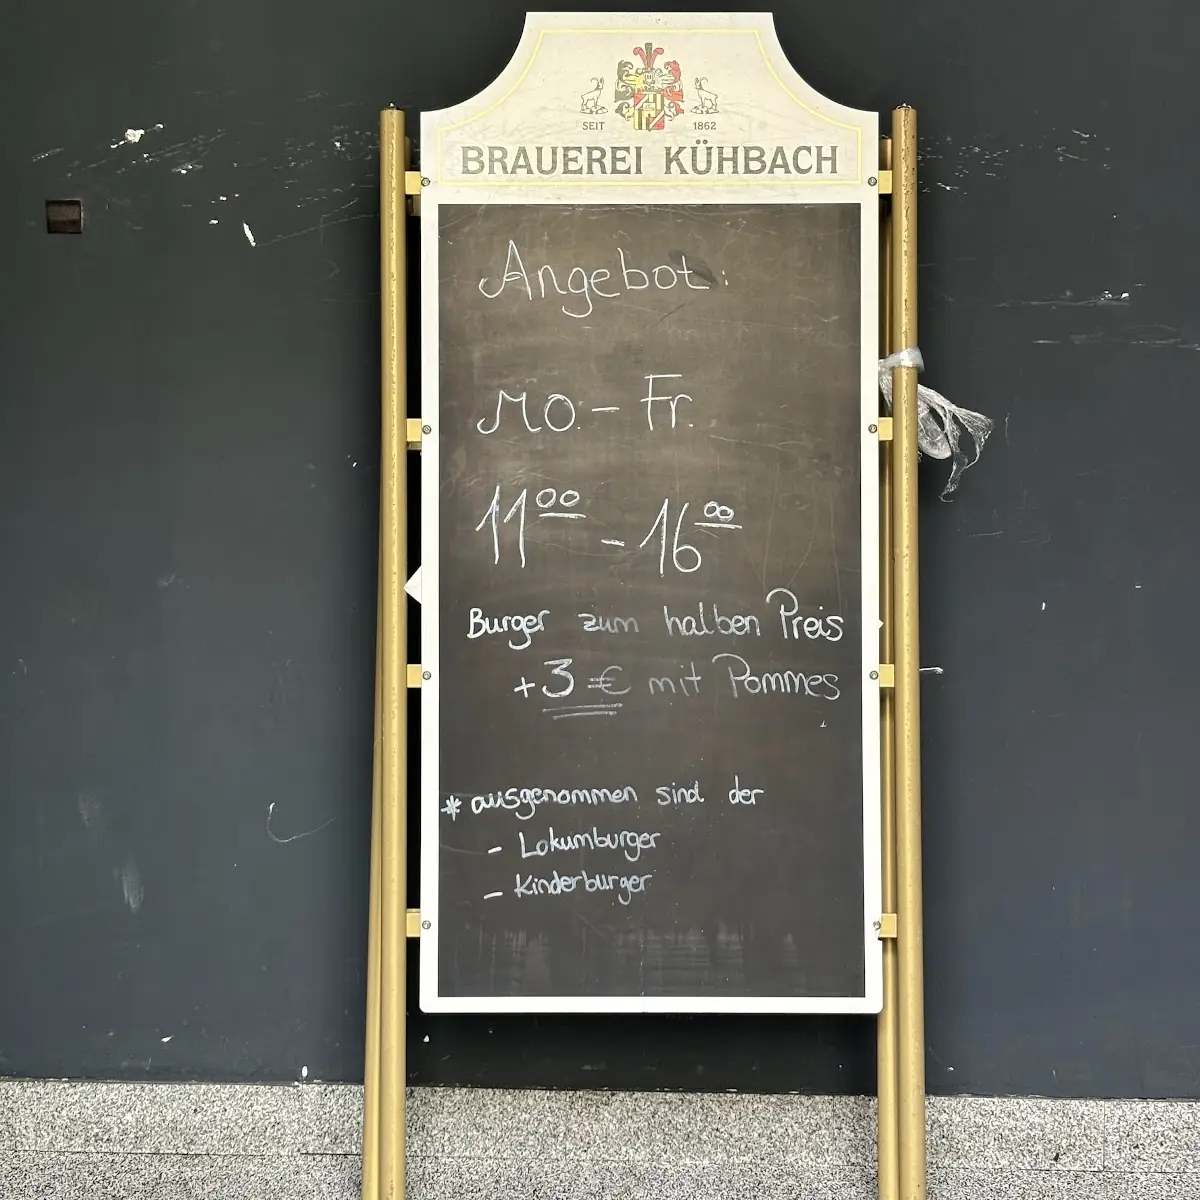 SEIT 1862
BRAUEREI KÜHBACH
Angebot:
Mo. - Fr.
11⁰⁰ - 16⁰⁰
Burger zum halben Preis
+3 € mit Pommes
* ausgenommen sind der
- Lokumburger
- Kinderburger